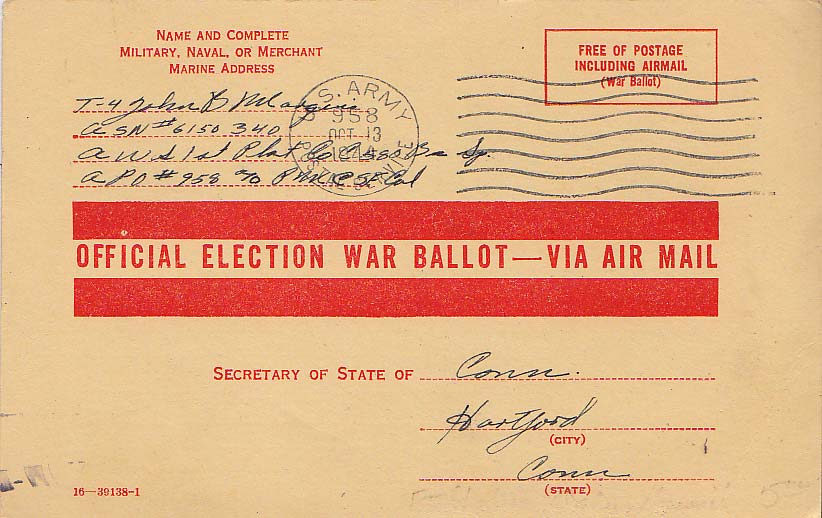 NAME AND COMPLETE
MILITARY, NAVAL, OR MERCHANT
MARINE ADDRESS
FREE OF POSTAGE
INCLUDING AIRMAIL
(War Ballot)
T-4 John B
ASN #6150 340
A W S 1st Plat Co C
APO #958 c/o P.M. SF Cal
U.S. ARMY
958
OCT 13
POSTAL SERVICE
OFFICIAL ELECTION WAR BALLOT—VIA AIR MAIL
SECRETARY OF STATE OF Conn.
Hartford
(CITY)
Conn
(STATE)
16—39138-1